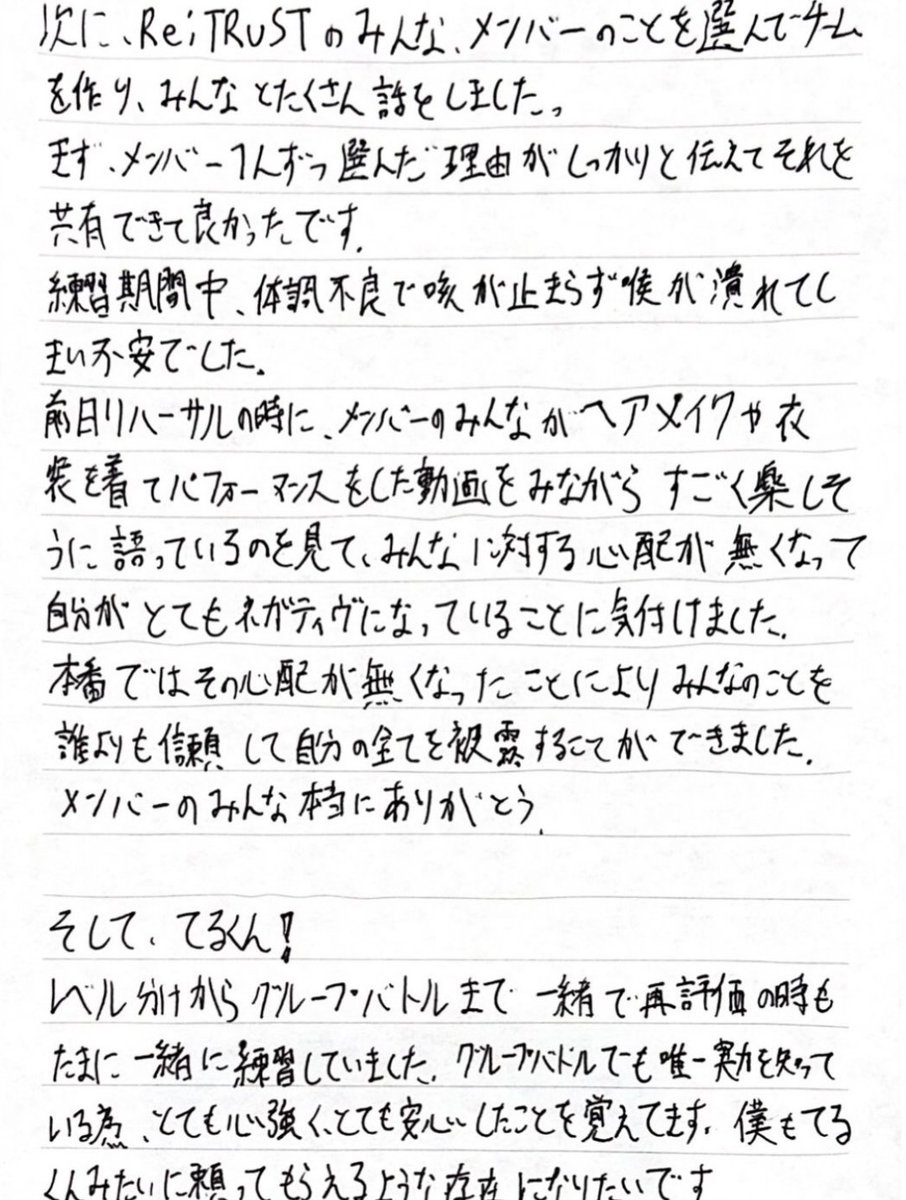 次に、Re;TRUSTのみんな、メンバーのことを選んでチーム
を作り、みんなとたくさん話をしました。
まず、メンバー1人ずつ選んだ理由がしっかりと伝えてそれを
共有できて良かったです。
練習期間中、体調不良で咳が止まらず喉が潰れてし
まい不安でした。
前日リハーサルの時に、メンバーのみんながヘアメイクや衣
装を着てパフォーマンスをした動画をみながらすごく楽しそ
うに語っているのを見て、みんなに対する心配が無くなって
自分がとてもネガティヴになっていることに気付けました。
本番ではその心配が無くなったことによりみんなのことを
誰よりも信頼して自分の全てを披露することができました。
メンバーのみんな本当にありがとう。
そして、てるくん!
レベル分けからグループバトルまで一緒で再評価の時も
たまに一緒に練習していました。グループバトルでも唯一実力を知って
いる為、とても心強く、とても安心したことを覚えてます。僕もてる
くんみたいに頼ってもらえるような存在になりたいです